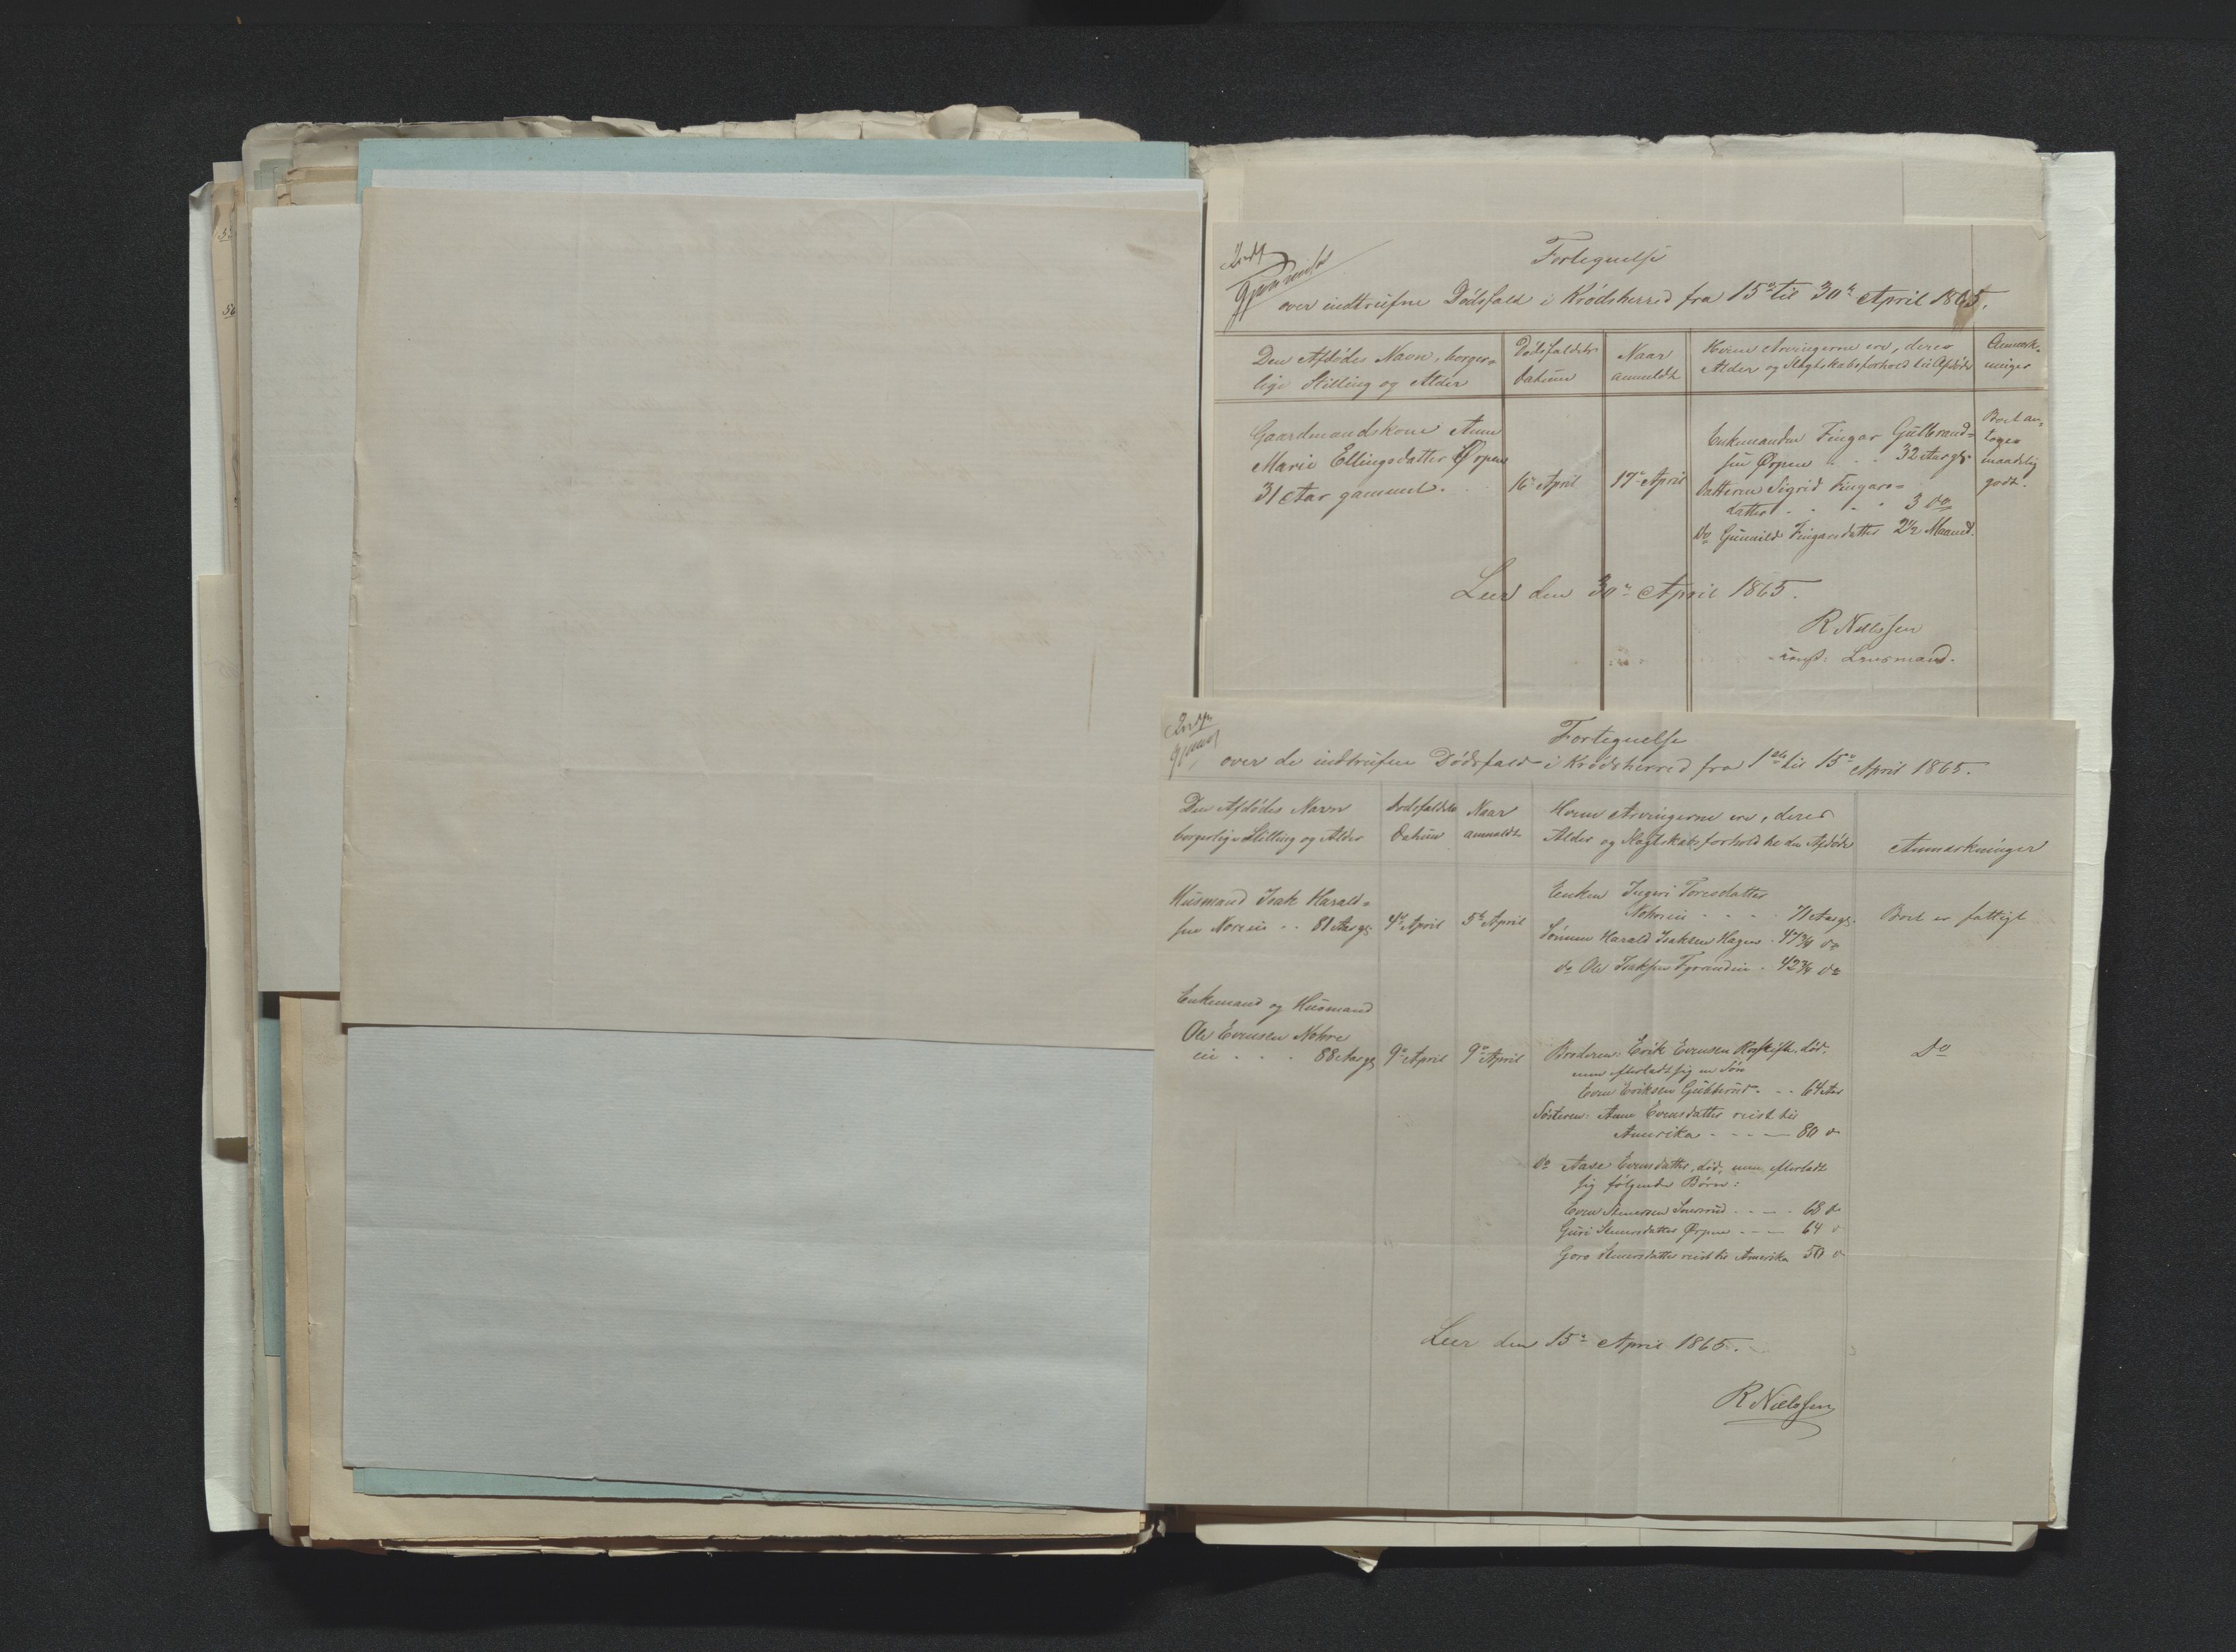 Fortegnelse
over indtrufne Dödsfald i Krödsherred fra 15de til 30te April 1865.
Den Afdödes Navn, borger=
lige Stilling og Alder
Dödsfaldets
Datum
Naar
anmeldt
Hvem Arvingerne ere, deres
Alder og Slægtskabsforhold til Afdöde
Anmærk=
ninger
Gaardmandskone Anne
Marie Ellingsdatter Ørpen
31 Aar gammel.
16de April
17de April
Enkemanden Fingar Gulbrand=
sen Ørpen - - 32 Aar gl.
Datteren Sigrid Fingars=
datter - - - 3 do
do Gunild Fingarsdatter 2½ Maaned.
Boet an=
tages
maadelig
godt.
Leer den 30te April 1865.
R Nielssen
const: Lensmand.
Fortegnelse
over de indtrufne Dödsfald i Krödsherred fra 1ste til 15de April 1865.
Den Afdödes Navn
borgerlige Stilling og Alder
Dödsfaldets
Datum
Naar
anmeldt
Hvem Arvingerne ere, deres
Alder og Slægtskabsforhold til den Afdöde
Anmærkninger
Husmand Isak Harald=
sen Noreie - - 81 Aar gl.
4de April
5te April
Enken Ingeri Toresdatter
Nohreie - - - - 71 Aar gl.
Sönnen Harald Isaksen Hagen - 47¾ do
do Ole Isaksen - 42¾ do
Boet er fattigt
Enkemand og Husmand
Ole Evensen Nohre
eie - - - 88 Aar gl
9de April
9de April
Broderen: Erik Evensen död,
men efterladt sig en Sön
Even Eriksen - - 64 Aar
Søsteren: Anne Evensdatter reist til
Amerika - - - - 80 do
do Aase Evensdatter, död, men efterladt
sig fölgende Börn:
Even Steensen - - - - 68 do
Guri Steensdatter Ørpen - - - 64 do
Goro Steensdatter reist til Amerika 50 do
Do
Leer den 15de April 1865.
R Nielssen